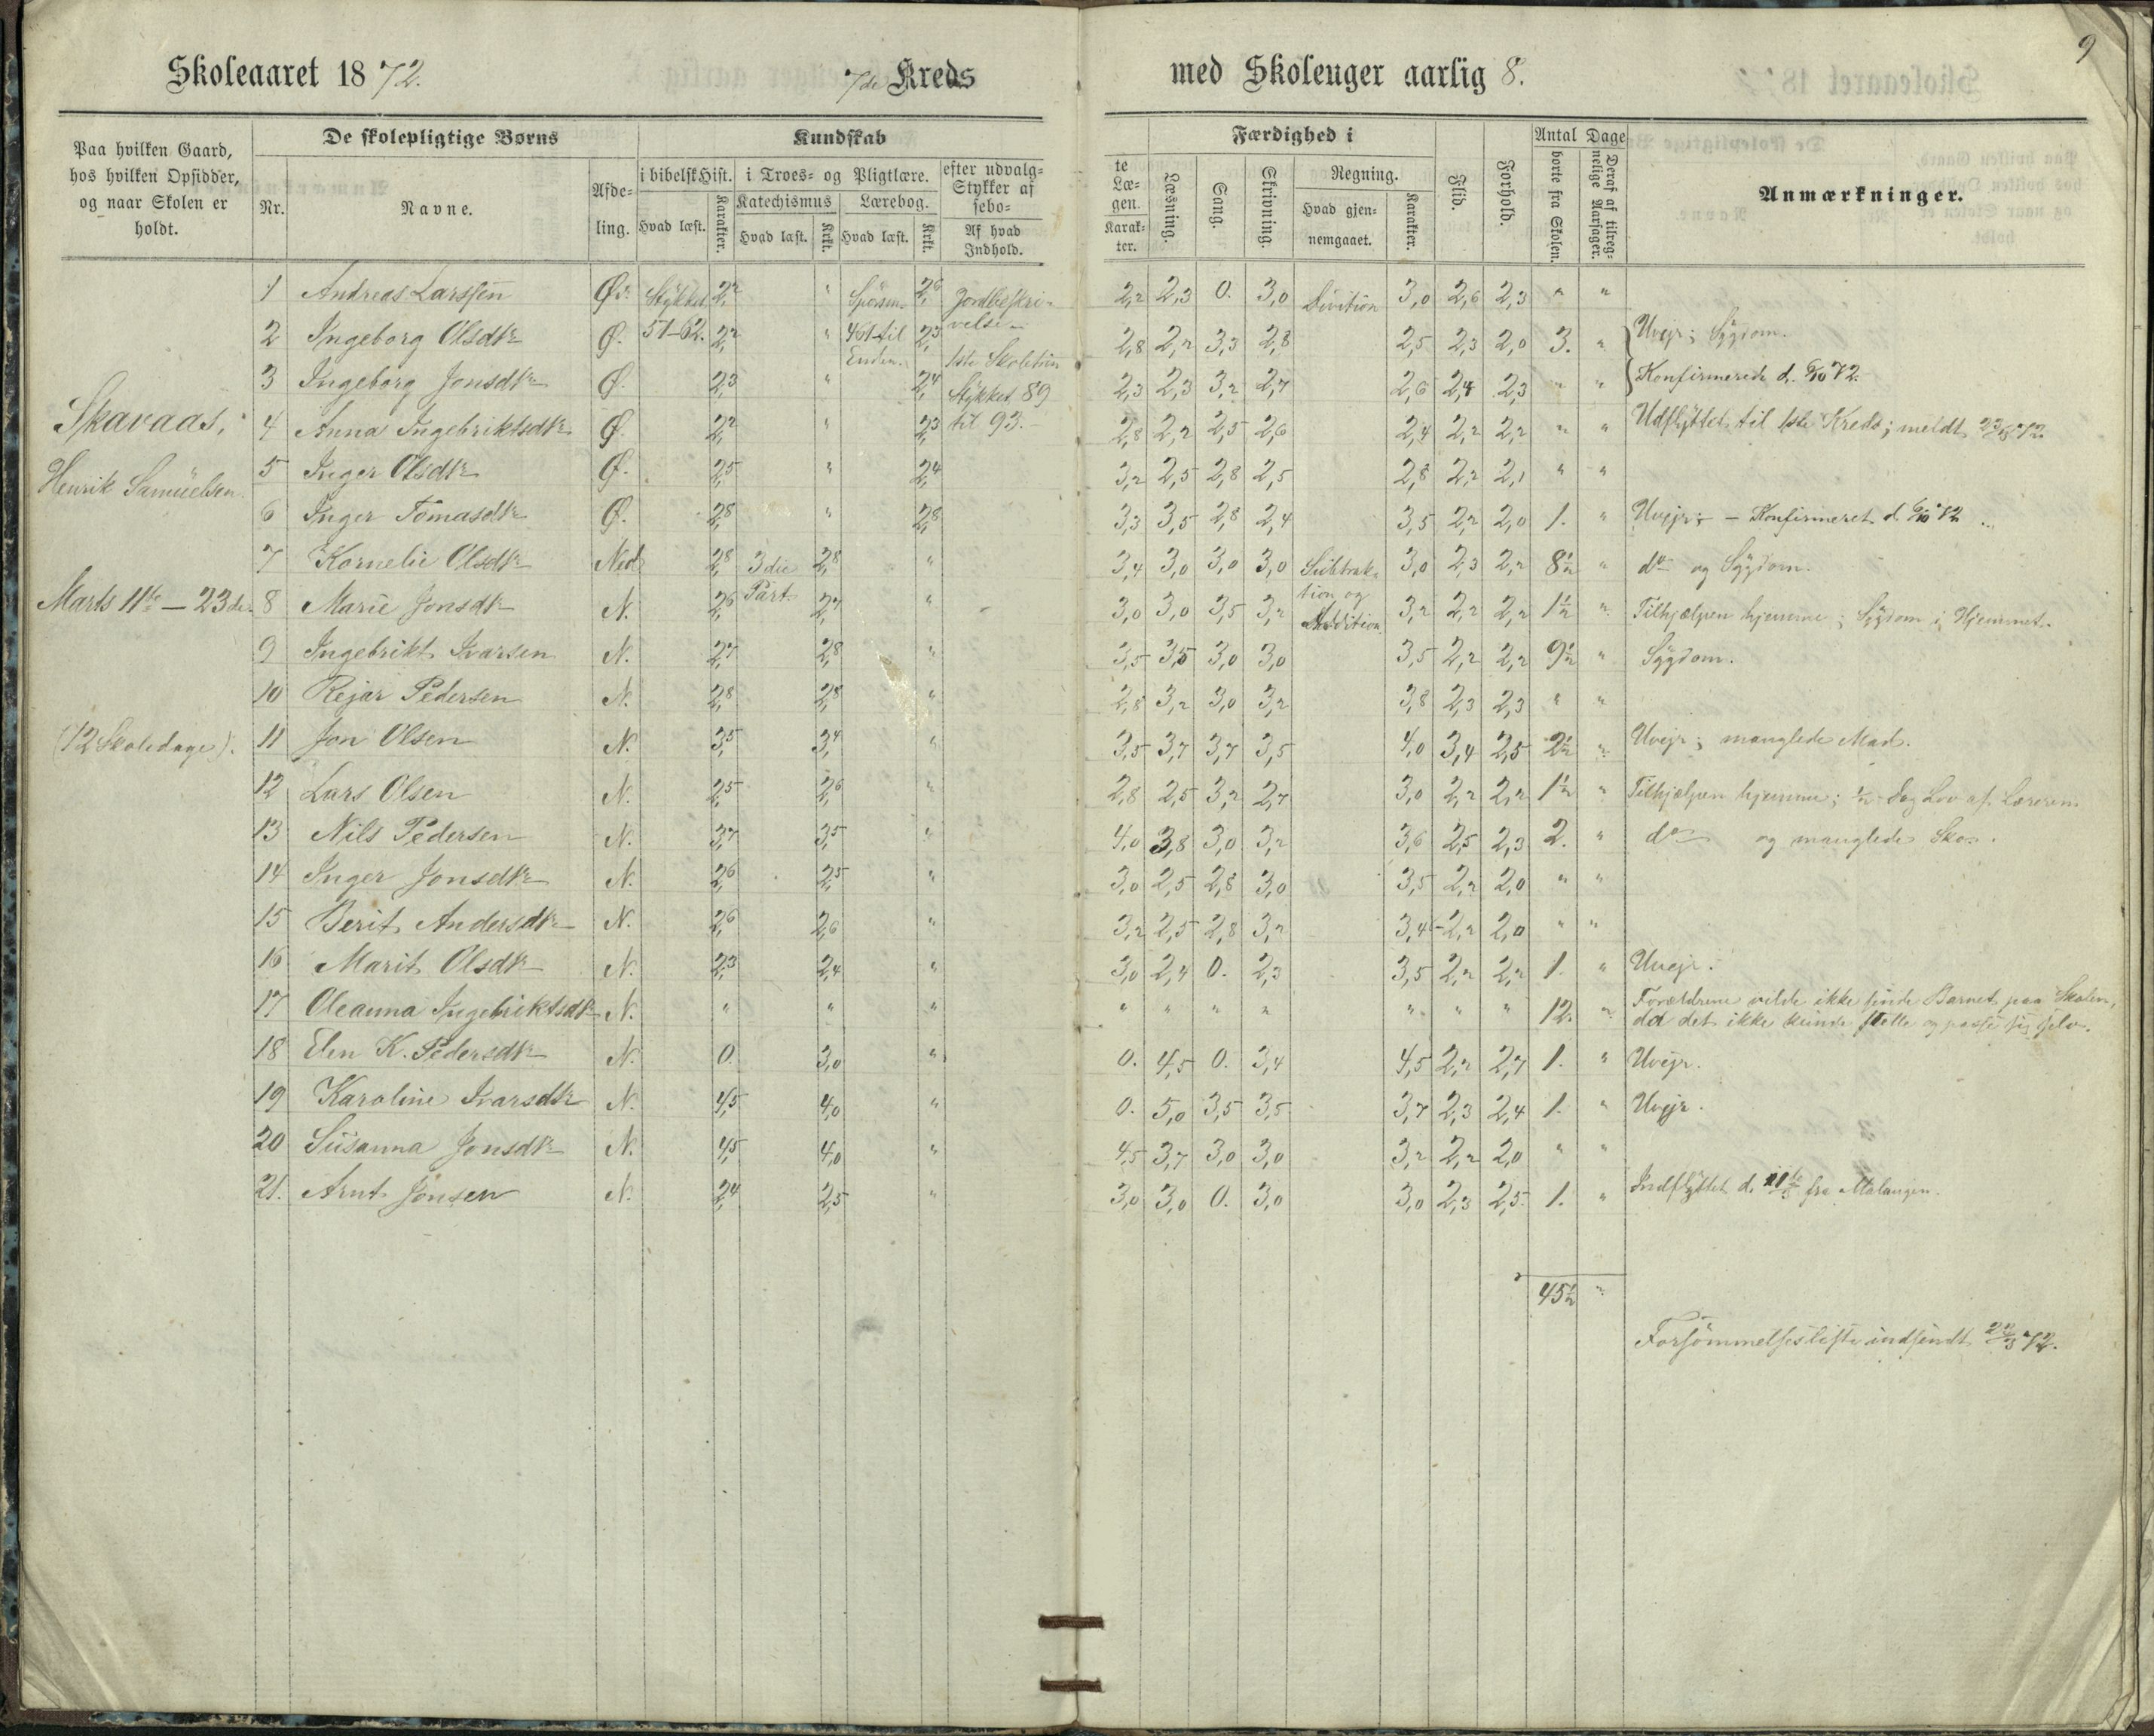 9
Skoleaaret 1872. 7de Kreds med Skoleuger aarlig 8.
Paa hvilken Gaard, hos hvilken Opsidder, og naar Skolen er holdt.
De skolepligtige Børns
Nr. Navne. Afdeling.
Kundskab
i bibelsk Hist. Hvad læst. Karakter.
i Troes- og Pligtlære.
Katechismus Hvad læst. Krkt.
Lærebog. Hvad læst. Krkt.
efter udvalgte Stykker af Læsebogen.
Af hvad Indhold. Karakter.
Færdighed i
Læsning. Sang. Skrivning.
Regning. Hvad gjennemgaaet. Karakter.
Flid. Forhold.
Antal Dage
borte fra Skolen. Deraf af tilregnelige Aarsager.
Anmærkninger.
Skavaas,
Henrik Samuelsen.
Marts 11te – 23de.
(12 Skoledage).
1 Andreas Larssen Ø. Stykket 2,2 " Spörsm. 2,6 Jordbeskri- 2,2 2,3 0. 3,0 Division 3,0 2,6 2,3 " "
velse
2 Ingeborg Olsdtr Ø. 51-62. 2,2 " 461 til 2,3 2,8 2,2 3,3 2,8 2,5 2,3 2,0 3. " Uvejr; Sygdom.
Enden. 1ste Skoletrin
3 Ingeborg Jonsdtr Ø. 2,3 " 2,4 Stykket 89 2,3 2,3 3,2 2,7 2,6 2,4 2,3 " " Konfirmerede d. 6/10 72.
4 Anna Ingebriktsdtr Ø. 2,2 " 2,3 til 93. 2,8 2,2 2,5 2,6 2,4 2,2 2,2 " " Udflyttet til 1ste Kreds; meldt 72.
5 Inger Olsdtr Ø. 2,5 " 2,4 3,2 2,5 2,8 2,5 2,8 2,2 2,1 " "
6 Inger Tomasdtr Ø. 2,8 " 2,8 3,3 3,5 2,8 2,4 3,5 2,2 2,0 1. " Uvejr; – Konfirmeret d. 6/10 72
7 Kornelie Olsdtr Ned 2,8 3die 2,8 " 3,4 3,0 3,0 3,0 Subtrak- 3,0 2,3 2,2 8½ " do og Sygdom.
Part tion og
8 Marie Jonsdtr N. 2,6 2,7 " 3,0 3,0 3,5 3,2 Addition 3,2 2,2 2,2 1½ " Tilhjælpen hjemme; Sygdom i Hjemmet.
9 Ingebrikt Ivarsen N. 2,7 2,8 " 3,5 3,5 3,0 3,0 3,5 2,2 2,2 9½ " Sygdom.
10 Rejar Pedersen N. 2,8 2,8 " 2,8 3,2 3,0 3,2 3,8 2,3 2,3 " "
11 Jon Olsen N. 3,5 3,4 " 3,5 3,7 3,7 3,5 4,0 3,4 2,5 2½ " Uvejr; manglede Mad.
12 Lars Olsen N. 2,5 2,6 " 2,8 2,5 3,2 2,7 3,0 2,2 2,2 1½ " Tilhjælpen hjemme; ½ Dag Lov af Læreren
13 Nils Pedersen N. 3,7 3,5 " 4,0 3,8 3,0 3,2 3,6 2,5 2,3 2. " do og manglede Sko.
14 Inger Jonsdtr N. 2,6 2,5 " 3,0 2,5 2,8 3,0 3,5 2,2 2,0 " "
15 Berit Andersdtr N. 2,6 2,6 " 3,2 2,5 2,8 3,2 3,4 2,2 2,0 " "
16 Marit Olsdtr N. 2,3 2,4 " 3,0 2,4 0. 2,3 3,5 2,2 2,2 1. " Uvejr.
17 Oleanna Ingebriktsdtr N. " " " " " " " " " " 12. " Forældrene vilde ikke sende Barnet paa Skolen,
da det ikke kunde stelle og passe sig selv.
18 Elen K. Pedersdtr N. 0. 3,0 " 0. 4,5 0. 3,4 4,5 2,2 2,7 1. " Uvejr.
19 Karoline Ivarsdtr N. 4,5 4,0 " 0. 5,0 3,5 3,5 3,7 2,3 2,4 1. " Uvejr.
20 Susanna Jonsdtr N. 4,5 4,0 " 4,5 3,7 3,0 3,0 3,2 2,2 2,0 " "
21. Arnt Jonsen N. 2,4 2,5 " 3,0 3,0 0. 3,0 3,0 2,3 2,5 1. " Indflyttet d. fra Malangen.
45½ "
Forsömmelsesliste indsendt 72.